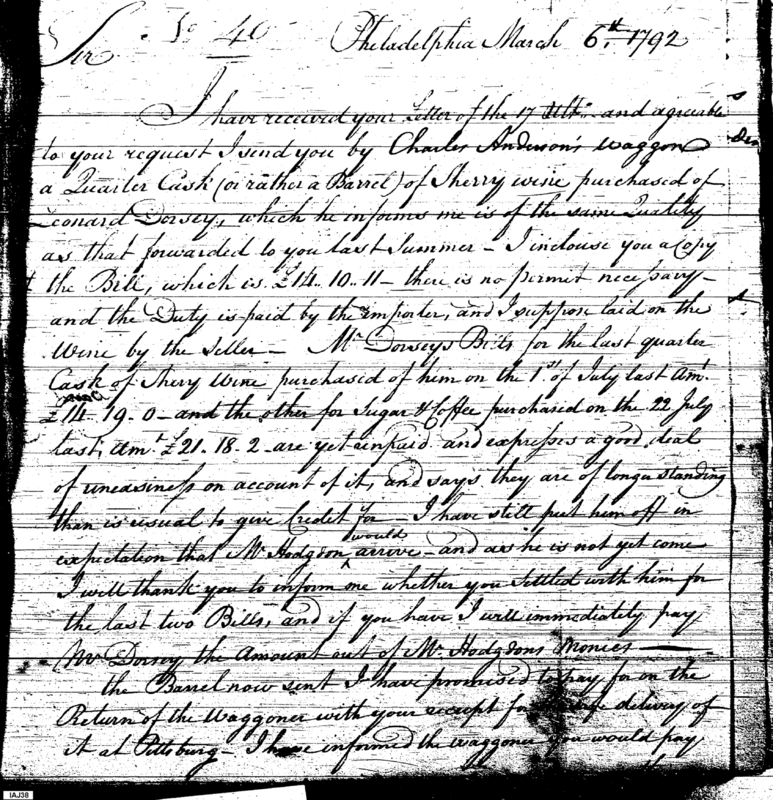 No 40
Philadelphia March 6th. 1792
Sir
I have received your Letter of the 17 Ulto. and agreable
to your request I send you by Charles Anderson's Waggon
a Quarter Cask (or rather a Barrel) of Sherry wine purchased of
Leonard Dorsey, which he informs me is of the same Quality
as that forwarded to you last Summer – I inclouse you a Copy
the Bill, which is £14..10..11 – there is no permit necessary –
and the Duty is paid by the importer, and I suppose laid on the
Wine by the Seller – Mr Dorseys Bills for the last quarter
Cask of Sherry Wine purchased of him on the 1st. of July last Amt.
£14. 19. 0 – and the other for Sugar & Coffee purchased on the 22 July
last, Amt. £21. 18. 2 are yet unpaid and expresses a good deal
of uneasiness on account of it, and says they are of longer standing
than is usual to give Credit for – I have still put him off in
would
expectation that Mr Hodgdon ^ arrive – and as he is not yet come
I will thank you to inform me whether you Settled with him for
the last two Bills, and if you have I will immediately pay
Mr Dorsey the Amount out of Mr. Hodgdons Monies –
the Barrel now sent I have promised to pay for on the
Return of the Waggoner with your receipt for delivery of
it at Pittsburg – I have informed the waggoner you would pay
IAJ38